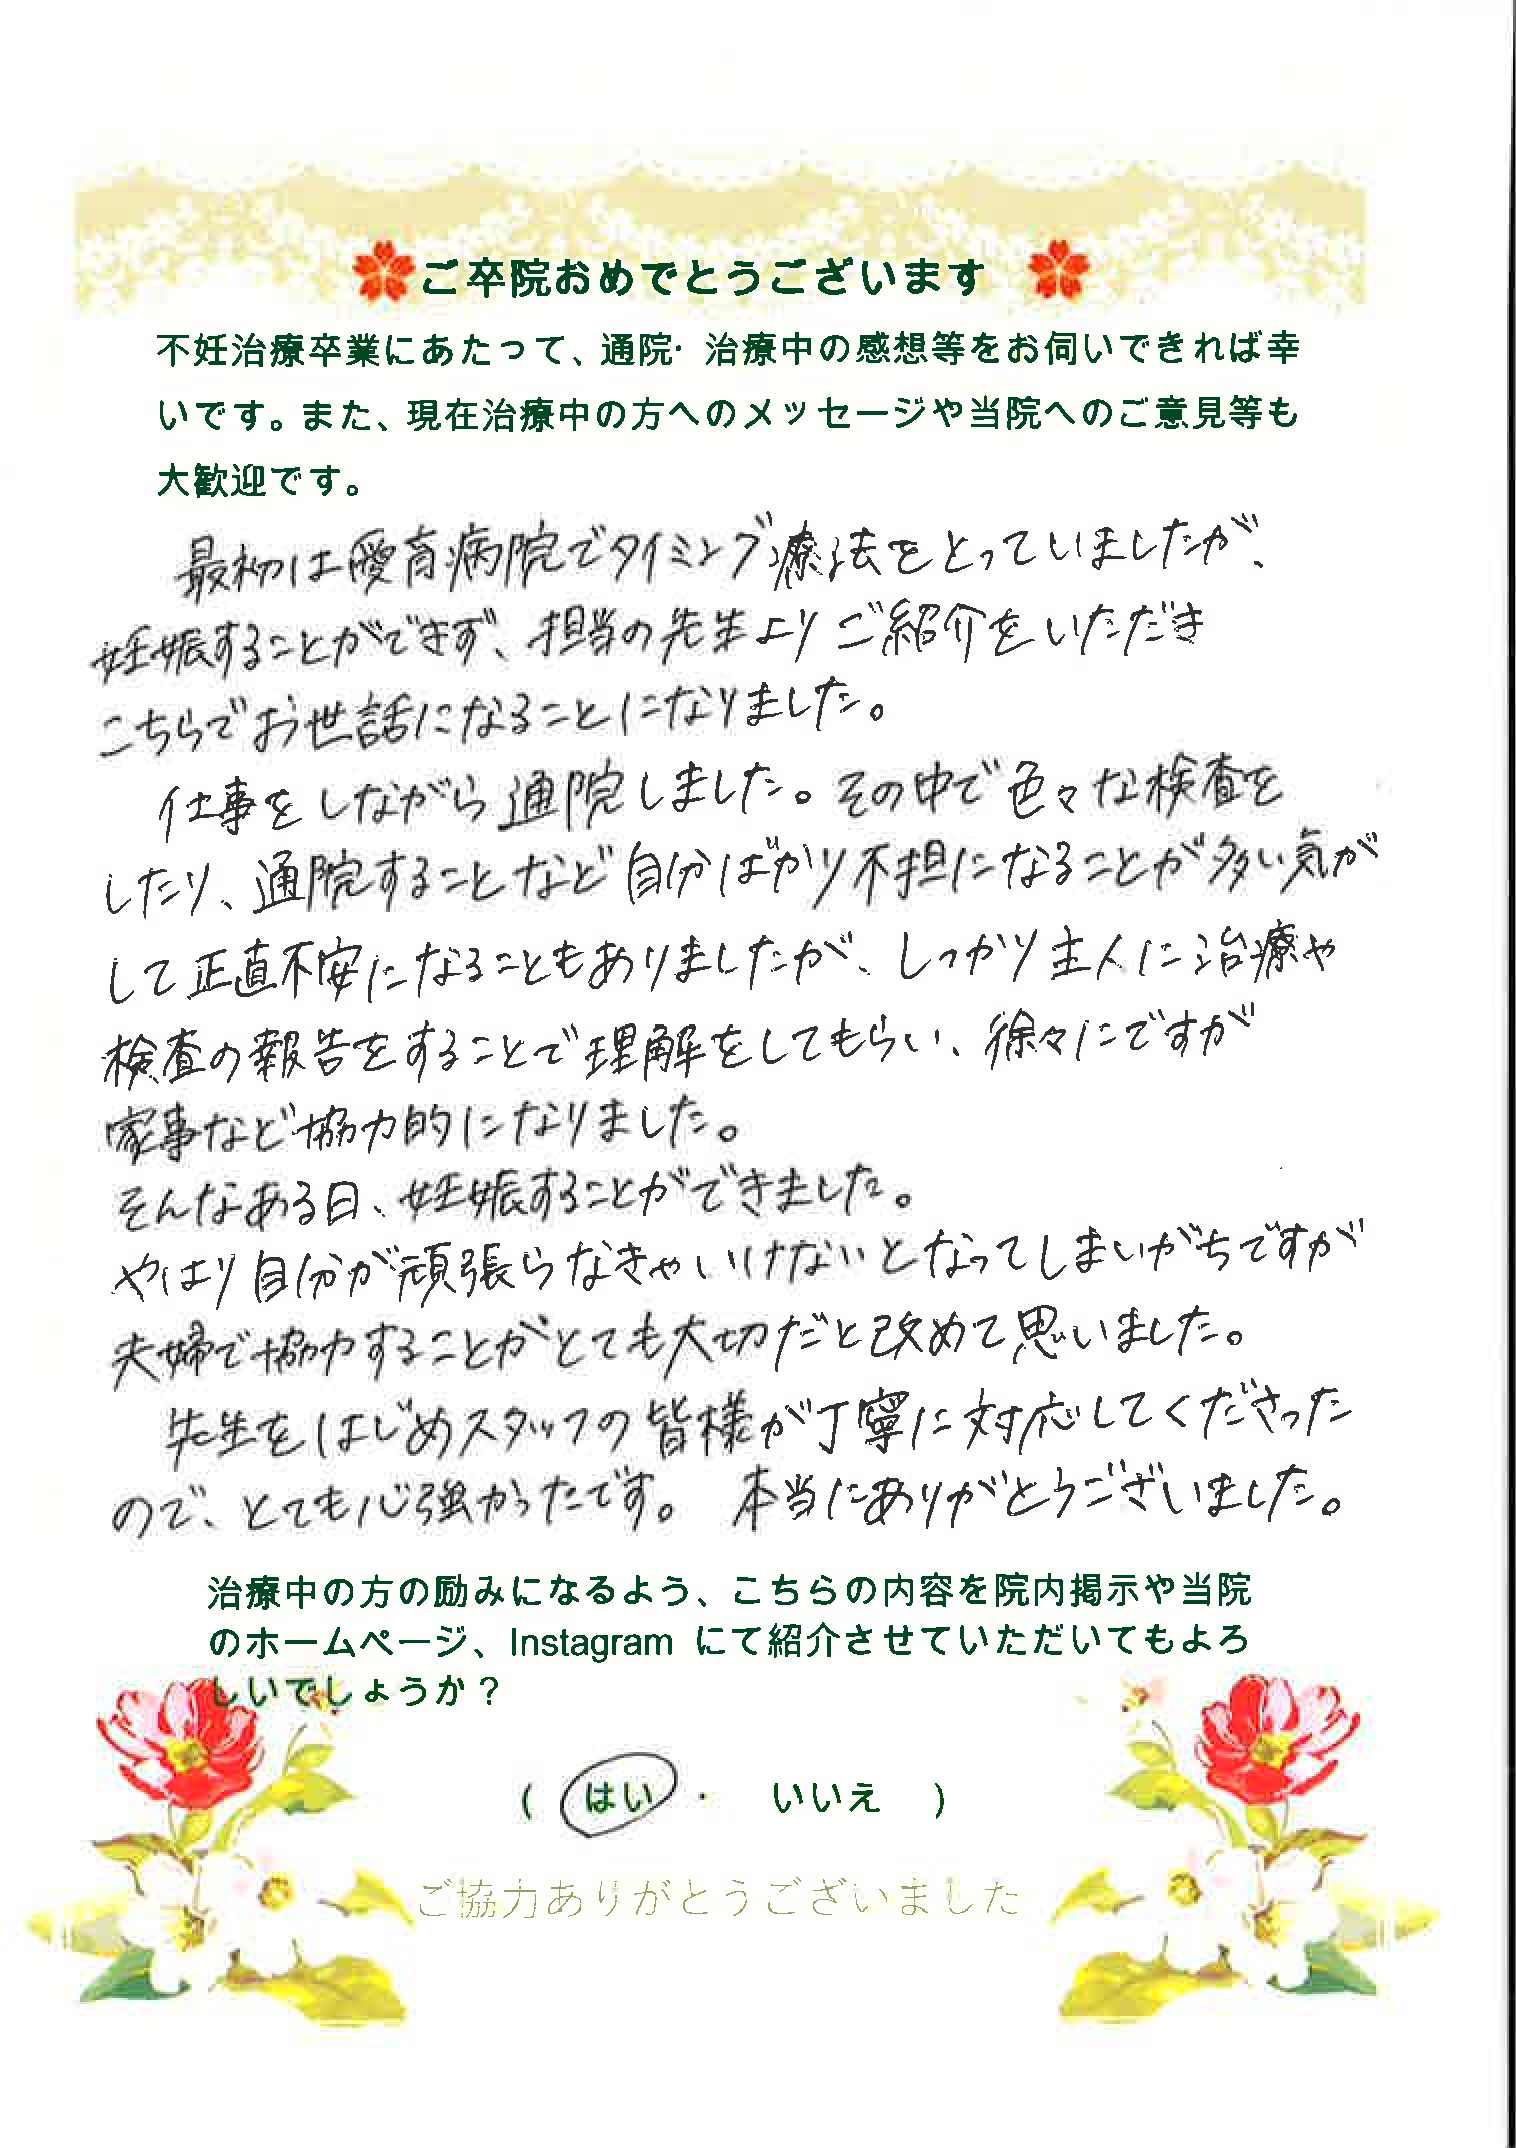 ご卒院おめでとうございます
不妊治療卒業にあたって、通院・治療中の感想等をお伺いできれば幸
いです。また、現在治療中の方へのメッセージや当院へのご意見等も
大歓迎です。
最初は愛育病院でタイミング療法をとっていましたが、
妊娠することができず、担当の先生よりご紹介をいただき
こちらでお世話になることになりました。
仕事をしながら通院しました。その中で色々な検査を
したり、通院することなど自分ばかり不担になることが多い気が
して正直不安になることもありましたが、しっかり主人に治療や
検査の報告をすることで理解をしてもらい、徐々にですが
家事など協力的になりました。
そんなある日、妊娠することができました。
やはり自分が頑張らなきゃいけないとなってしまいがちですが
夫婦で協力することがとても大切だと改めて思いました。
先生をはじめスタッフの皆様が丁寧に対応してくださった
ので、とても心強かったです。 本当にありがとうございました。
治療中の方の励みになるよう、こちらの内容を院内掲示や当院
のホームページ、Instagram にて紹介させていただいてもよろ
しいでしょうか？
( はい ・ いいえ )
ご協力ありがとうございました